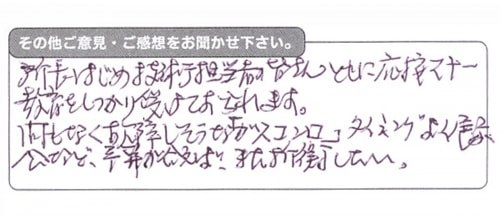 その他ご意見・ご感想をお聞かせ下さい。
所長はじめ技術担当者の皆さんともに応接マナー
教育をしっかり受けておられます。
間もなく故障しそうなガスコンロ、タイミングよく展示
会など、予算が合えば、またお願いしたい。